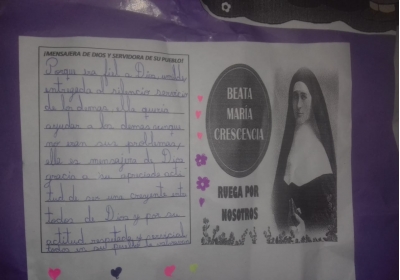 ¡MENSAJERA DE DIOS Y SERVIDORA DE SU PUEBLO!
Porque era fiel a Dios, 
entregada al silencio 
de los demas, ella queria
ayudar a los demas aunque
no eran sus problemas,
ella es mensajera de Dios
gracias a su 
de ser una creyente ante
todos de Dios y por su
actitud respetada y servicial
todos en su 
BEATA
MARÍA
CRESCENCIA
RUEGA POR
NOSOTROS